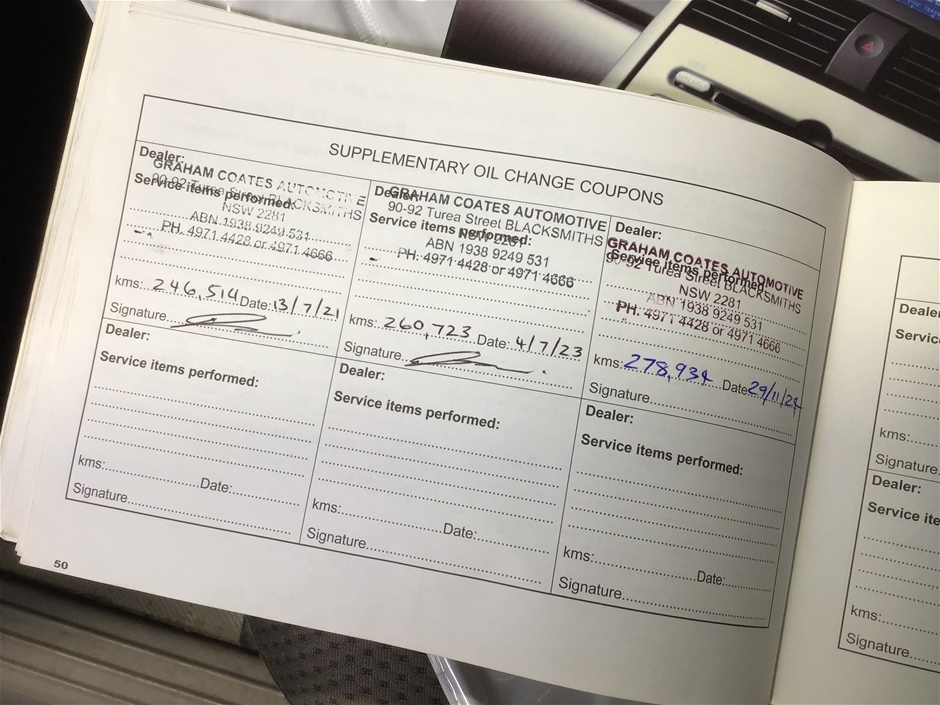 SUPPLEMENTARY OIL CHANGE COUPONS
Dealer:
GRAHAM COATES AUTOMOTIVE
90-92 Turea Street BLACKSMITHS
Service items performed:
NSW 2281
ABN 1938 9249 531
PH: 4971 4428 or 4971 4666
kms: 246,514 Date: 13/7/21
Signature
Dealer:
GRAHAM COATES AUTOMOTIVE
90-92 Turea Street BLACKSMITHS
Service items performed:
NSW 2281
ABN 1938 9249 531
PH: 4971 4428 or 4971 4666
kms: 260,723 Date: 4/7/23
Signature
Dealer:
GRAHAM COATES AUTOMOTIVE
Service items performed:
90-92 Turea Street BLACKSMITHS
NSW 2281
ABN 1938 9249 531
PH: 4971 4428 or 4971 4666
kms: 278,934 Date: 29/11/24
Signature
Dealer:
Service items performed:
kms: Date:
Signature
Dealer:
Service items performed:
kms: Date:
Signature
Dealer:
Service items performed:
kms: Date:
Signature
50
Dealer
Servic
kms:
Signature
Dealer:
Service ite
kms:
Signature